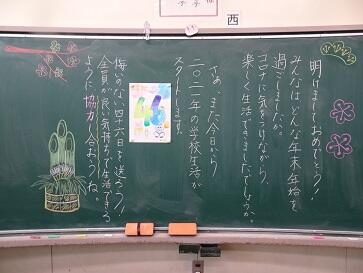 西
明けましておめでとう！
みんなは、どんな年末年始を
過ごしましたか。
コロナに気をつけながら、
楽しく生活できましたでしょうか。
さぁ、また今日から
二〇二一年の学校生活が
スタートします。
46
悔いのない四十六日を送ろう！
全員が良い気持ちで生活できる
ように協力し合おうね。